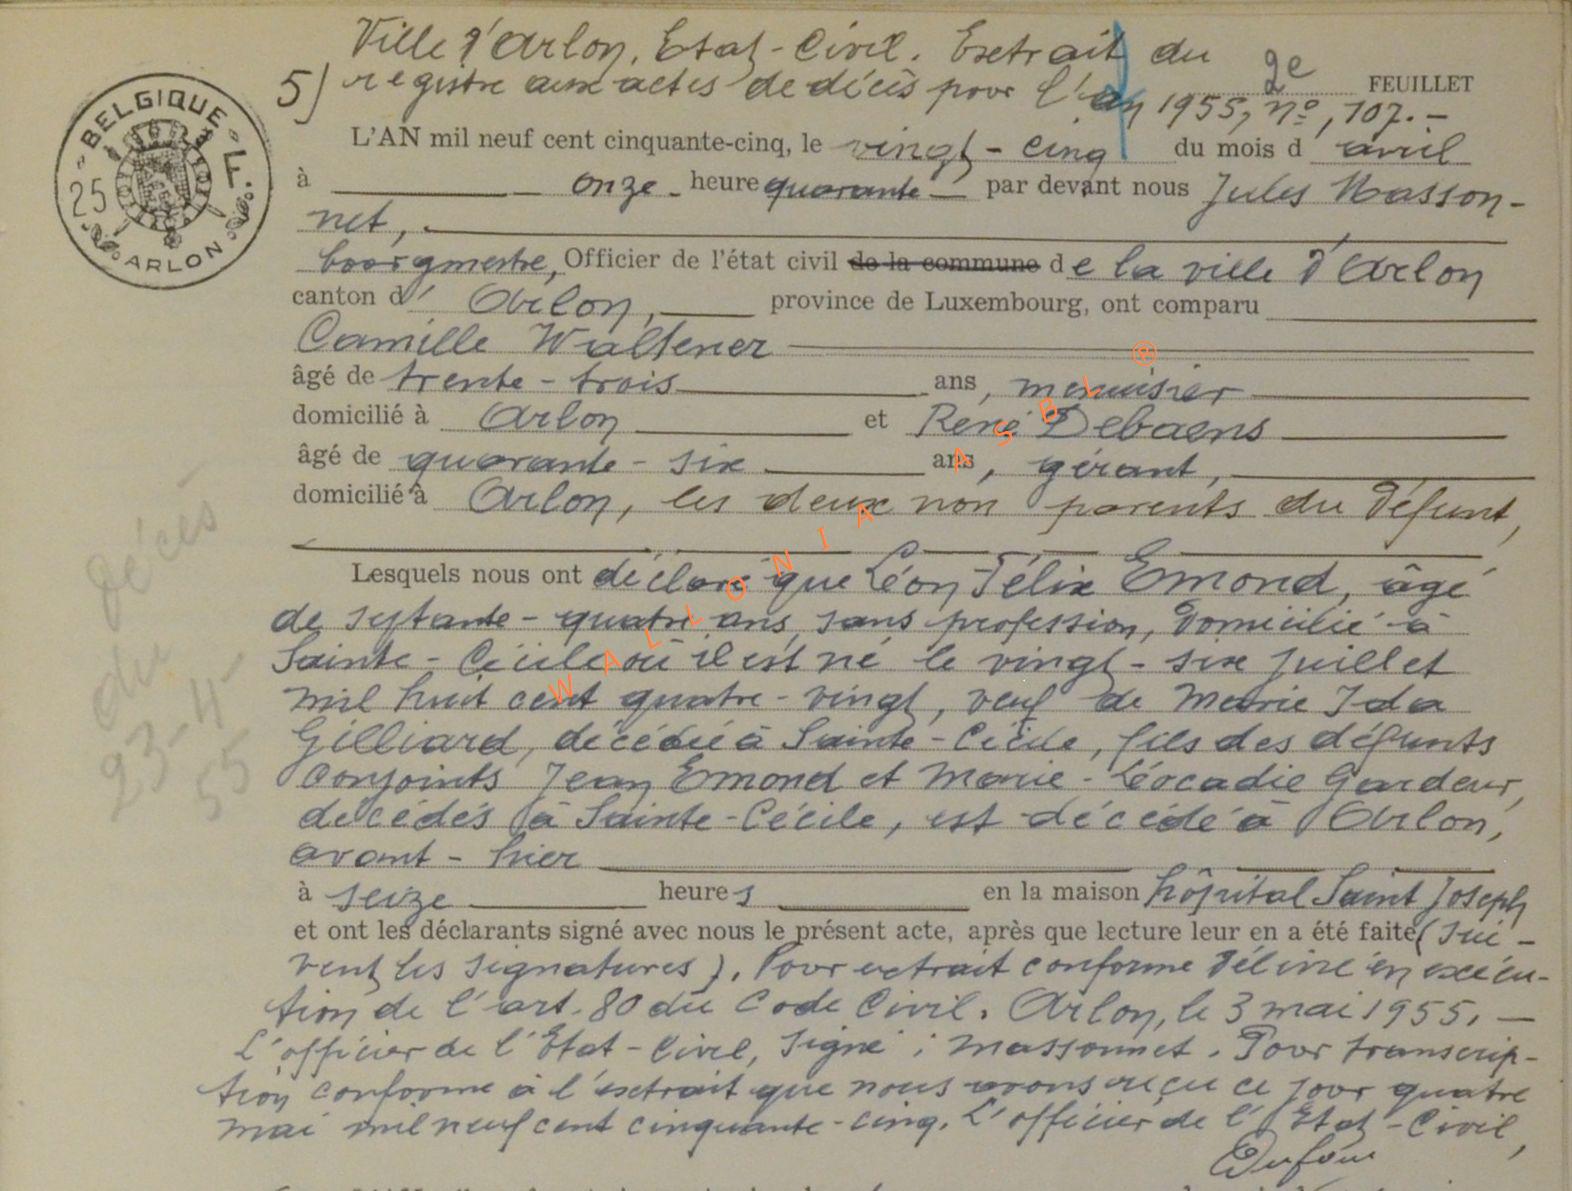 Ville d'Arlon. Etat-Civil. Extrait du
2e FEUILLET
5) registre aux actes de décès pour l'an 1955, n°, 107.-
BELGIQUE
25 F.
ARLON
L'AN mil neuf cent cinquante-cinq, le vingt-cinq du mois d avril
à onze heure quarante par devant nous Jules Masson-
net,
bourgmestre, Officier de l'état civil de la commune de la ville d'Arlon
canton d' Arlon, province de Luxembourg, ont comparu
Camille Waltener
âgé de trente-trois ans, menuisier
domicilié à Arlon et René Debaens
âgé de quarante-six ans, gérant,
domicilié à Arlon, les deux non parents du défunt,
Lesquels nous ont déclaré que Léon Félix Emond, âgé
de septante-quatre ans, sans profession, domicilié à
Sainte-Cécile où il est né le vingt-six juillet
mil huit cent quatre-vingt, veuf de Marie Ida
Gilliard, décédée à Sainte-Cécile, fils des défunts
conjoints Jean Emond et Marie-Léocadie Gardeur,
décédés à Sainte-Cécile, est décédé à Arlon,
avant-hier
à seize heures en la maison hôpital Saint Joseph
et ont les déclarants signé avec nous le présent acte, après que lecture leur en a été faite (sui-
vent les signatures). Pour extrait conforme délivré en exécu-
tion de l'art. 80 du Code Civil. Arlon, le 3 mai 1955.-
L'officier de l'Etat-Civil, Signé: Massonnet. Pour transcrip-
tion conforme à l'extrait que nous avons reçu ce jour quatre
mai mil neuf cent cinquante-cinq. L'officier de l'Etat-Civil,
Dufour
décès
du
23-4-
55
WALLONIA ASBL ®